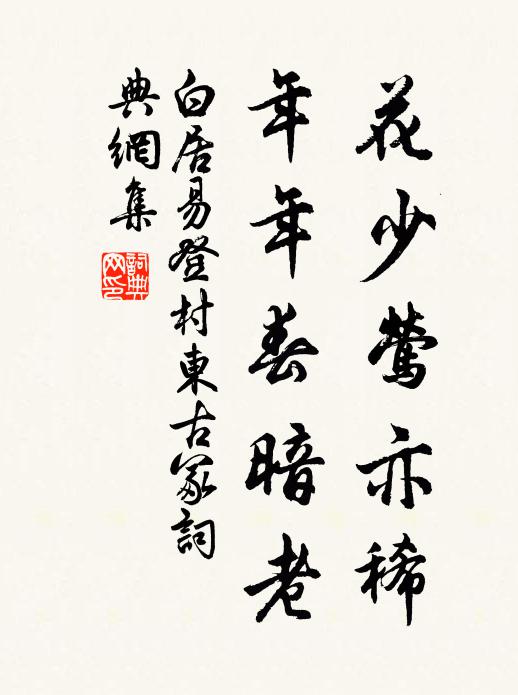 花少鶯亦稀
年年春暗老
白居易登村東古冢詞
典網集
詞典
网印